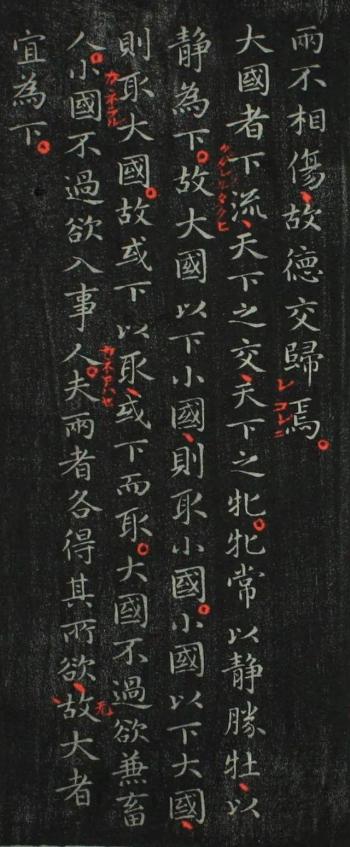 兩不相傷、故德交歸焉。
大國者下流、天下之交、天下之牝。牝常以静勝牡、以
静為下。故大國以下小國、則取小國。小國以下大國、
則取大國。故或下以取、或下而取。大國不過欲兼畜
人。小國不過欲入事人。夫兩者各得其所欲、故大者
宜為下。